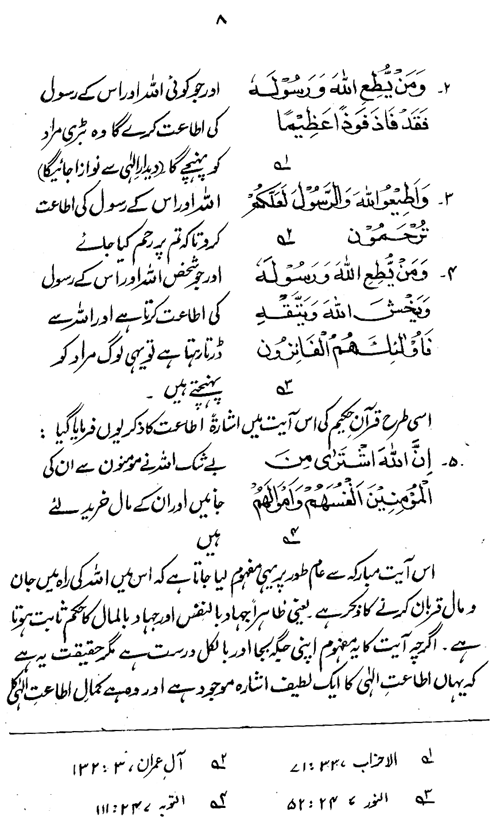 ۸
۲۔ وَمَنْ يُّطِعِ اللّٰهَ وَرَسُوْلَهٗ اور جو کوئی اللہ اور اس کے رسول
فَقَدْ فَازَ فَوْزًا عَظِيْمًا کی اطاعت کرے گا وہ بڑی مراد
؎۱ کو پہنچے گا (دیدارِ الٰہی سے نوازا جائیگا)
۳۔ وَاَطِيْعُوا اللّٰهَ وَالرَّسُوْلَ لَعَلَّكُمْ اللہ اور اس کے رسول کی اطاعت
تُرْحَمُوْنَ ؎۲ کرو تاکہ تم پر رحم کیا جائے
۴۔ وَمَنْ يُّطِعِ اللّٰهَ وَرَسُوْلَهٗ اور جو شخص اللہ اور اس کے رسول
وَيَخْشَ اللّٰهَ وَيَتَّقْهِ کی اطاعت کرتا ہے اور اللہ سے
فَاُولٰئِكَ هُمُ الْفَائِزُوْنَ ڈرتا رہتا ہے تو یہی لوگ مراد کو
؎۳ پہنچتے ہیں ۔
اسی طرح قرآنِ حکیم کی اس آیت میں اشارۃً اطاعت کا ذکر یوں فرمایا گیا :
۵۔ اِنَّ اللّٰهَ اشْتَرٰى مِنَ بے شک اللہ نے مومنوں سے ان کی
الْمُؤْمِنِيْنَ اَنْفُسَهُمْ وَاَمْوَالَهُمْ جانیں اور ان کے مال خرید لئے
؎۴ ہیں
اس آیت مبارکہ سے عام طور پر یہی مفہوم لیا جاتا ہے کہ اس میں اللہ کی راہ میں جان
و مال قربان کرنے کا ذکر ہے۔ یعنی ظاہراً جہاد بالنفس اور جہاد بالمال کا حکم ثابت ہوتا
ہے۔ اگرچہ آیت کا یہ مفہوم اپنی جگہ بجا اور بالکل درست ہے مگر حقیقت یہ ہے
کہ یہاں اطاعتِ الٰہی کا ایک لطیف اشارہ موجود ہے اور وہ ہے کمالِ اطاعتِ الٰہی کا
؎۱ الاحزاب ، ۳۳:۷۱ ؎۲ آلِ عمران ، ۳:۱۳۲
؎۳ النور ، ۲۴:۵۲ ؎۴ التوبہ ، ۲۴:۱۱۱